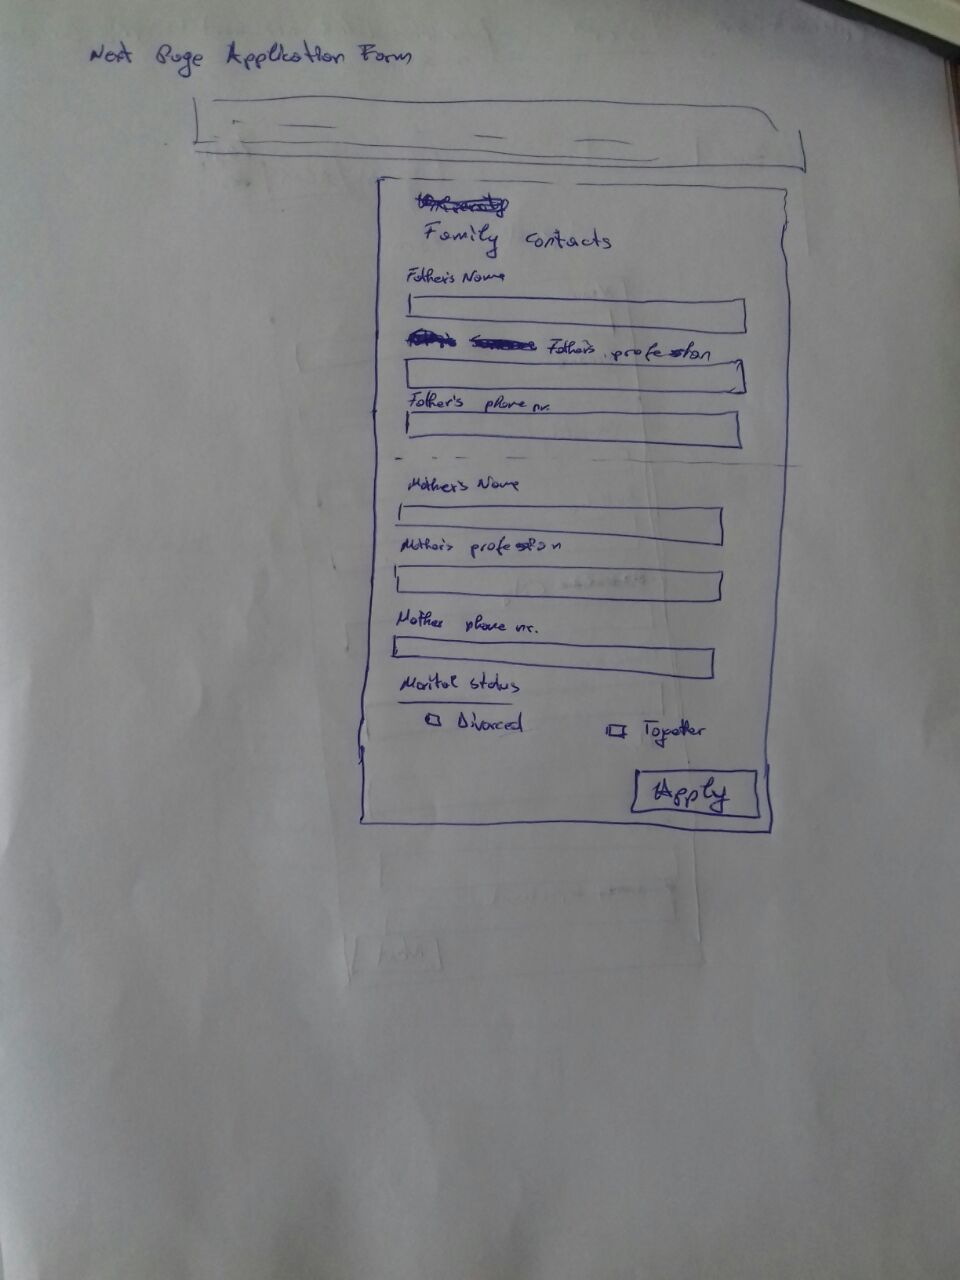 Next Page Application Form
Family contacts
Father's Name
Father's profession
Father's phone nr.
Mother's Name
Mother's profession
Mother phone nr.
Marital status
Divorced Together
Apply